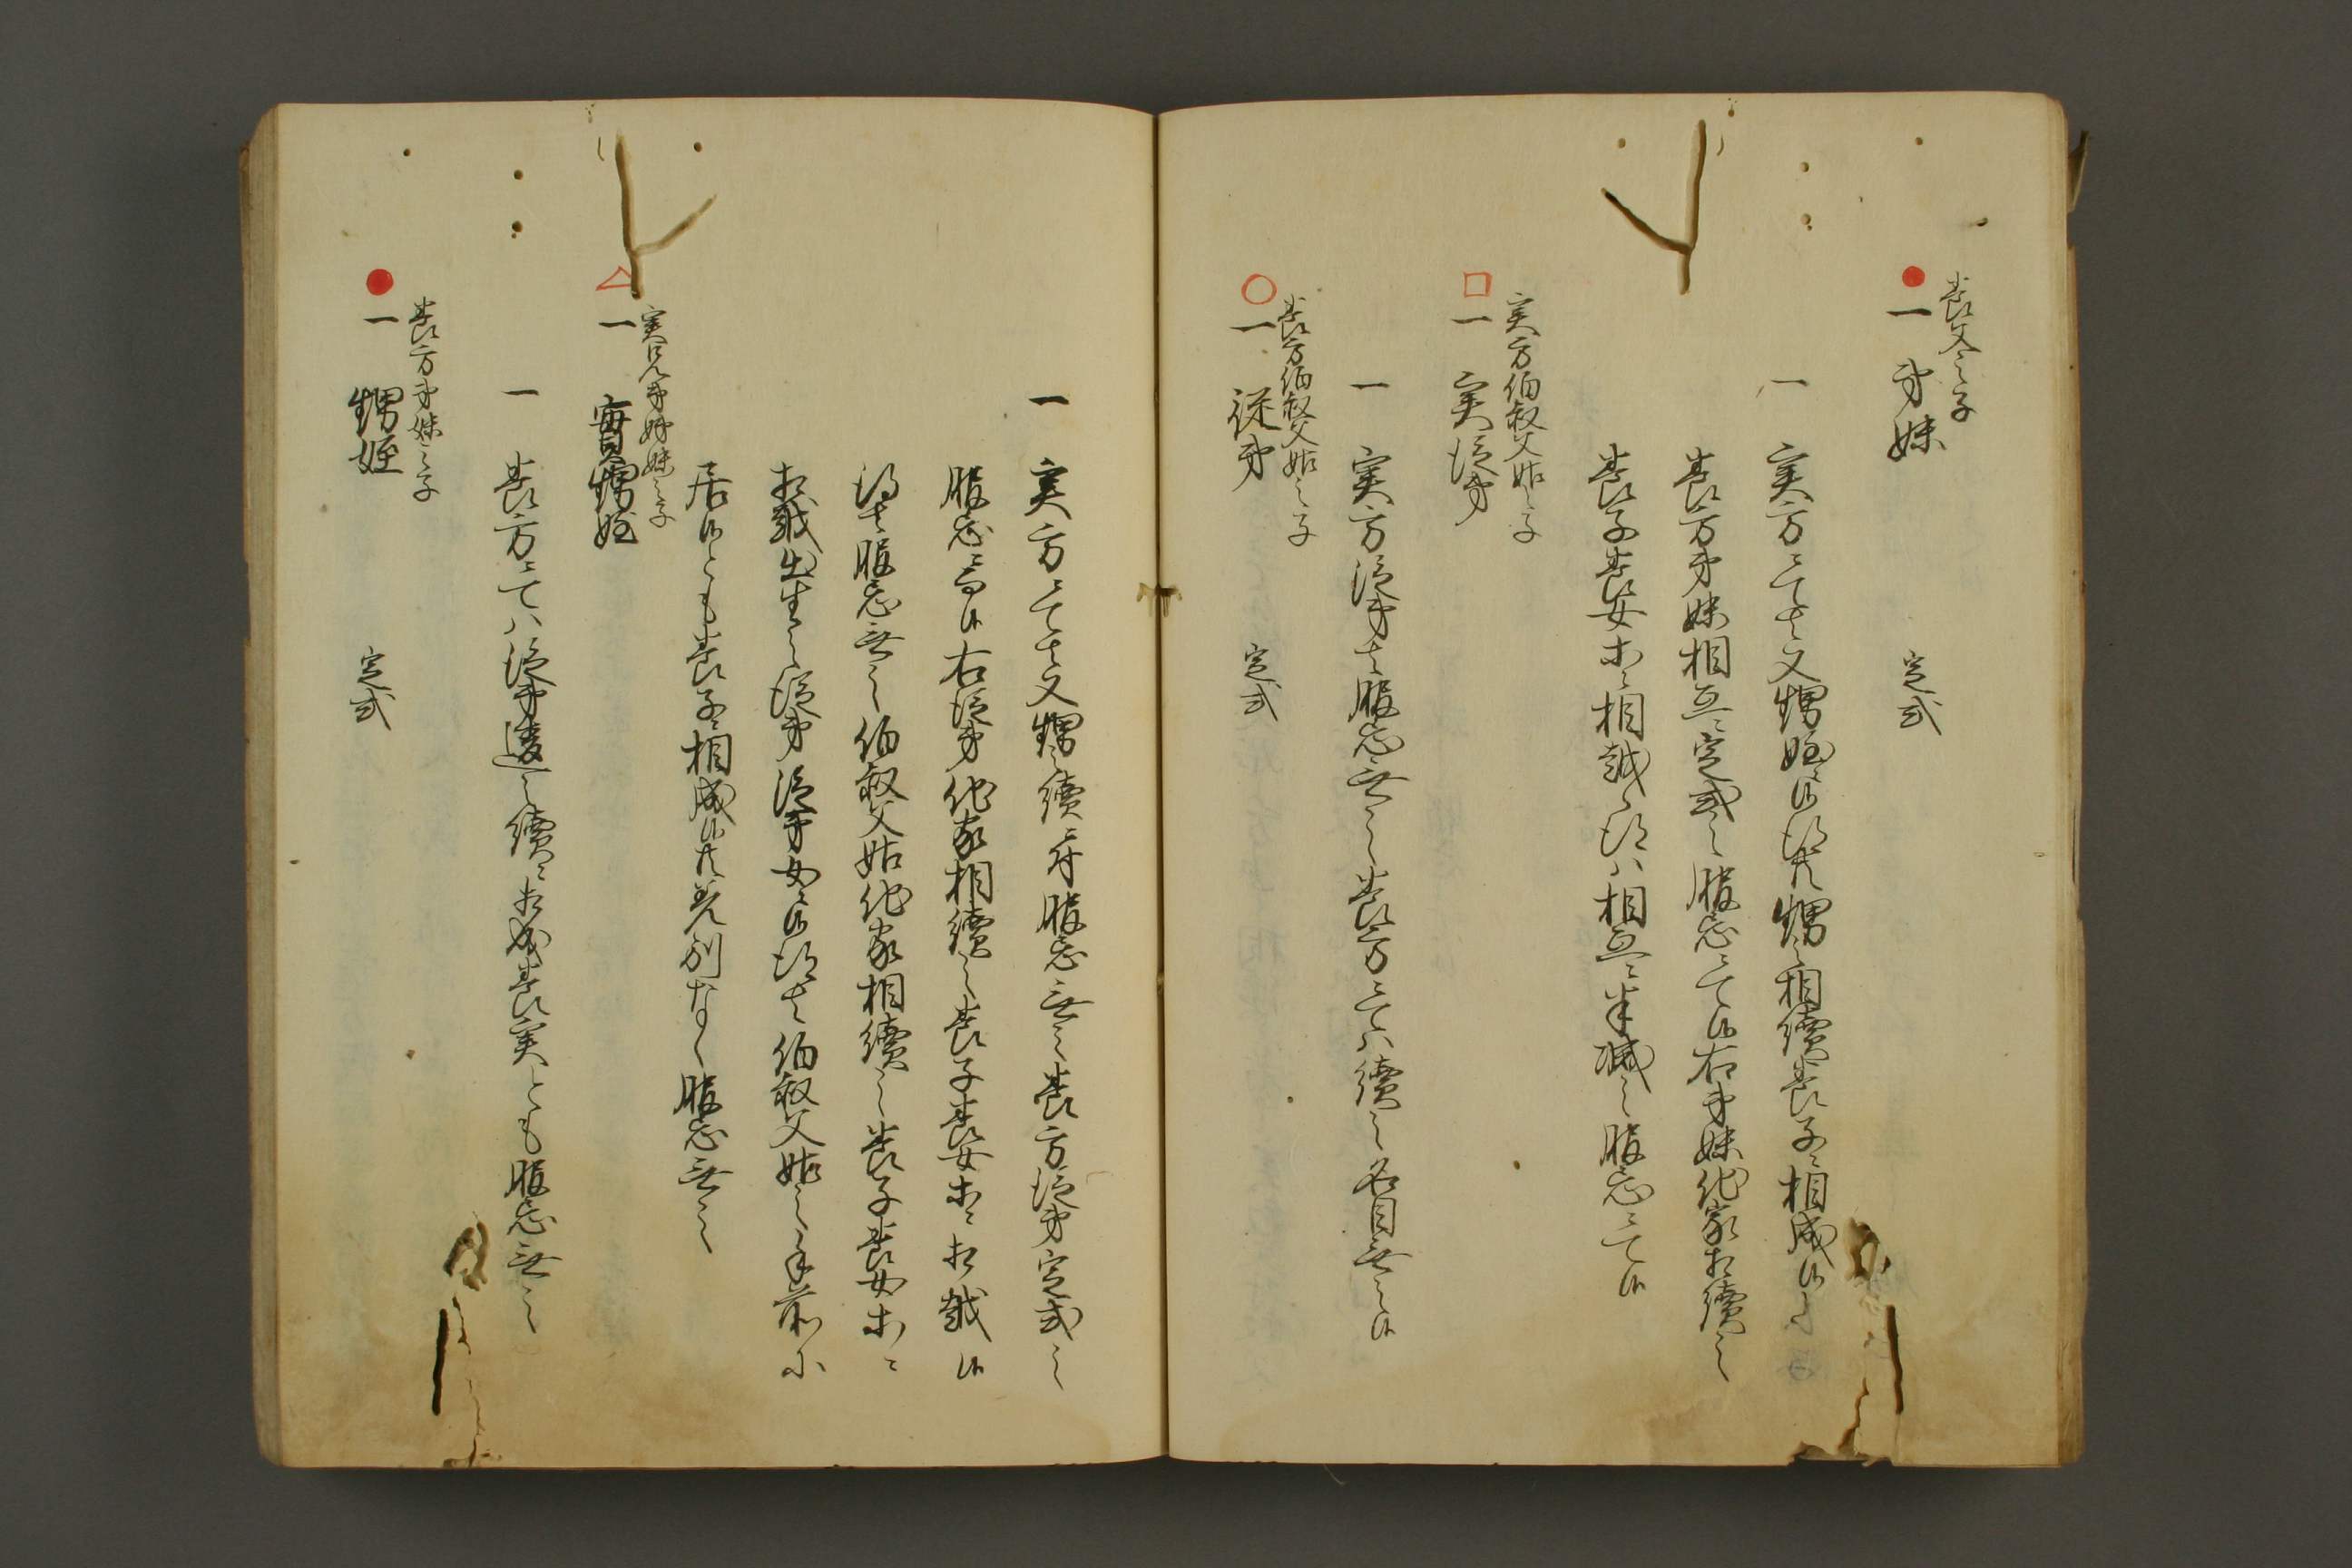 養父之子
一 弟妹 定式
一 実方ニてハ又甥姪ニ候得共甥之相続養子ニ相成候
養方弟妹相互ニ定式之服忌ニて候右弟妹他家相続之
養子養女ホニ相越候得ハ相互ニ半減之服忌ニて候
実方伯叔父姑之子
一 実従弟
一 実方従弟ハ服忌無之養方ニてハ続之名目無之候
養方伯叔父姑之子
一 従弟 定式
一 実方ニてハ又甥之続ニ付服忌無之養方従弟定式之
服忌ニ而候右従弟他家相続之養子養女ホニ相越候
得ハ服忌無之伯叔父姑他家相続之養子養女ホニ
相越出生之従弟従弟女ニ候得ハ伯叔父姑之手前ニ
居候とも養子ニ相成候共差別なく服忌無之
実兄弟姉妹之子
一 實甥姪
一 養方ニてハ従弟違之続ニ相成養実とも服忌無之
養方弟妹之子
一 甥姪 定式